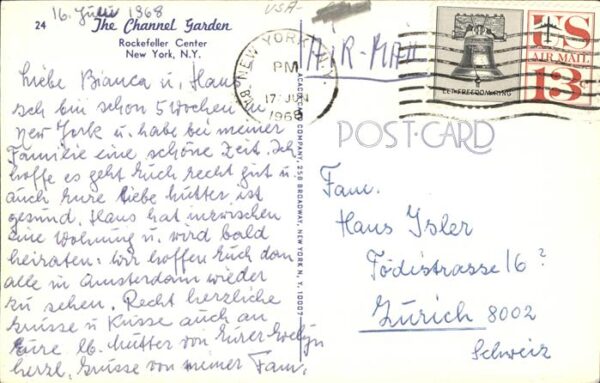 16. Juni 1968
USA-
24 The Channel Garden
Rockefeller Center
New York, N.Y.
Liebe Bianca u. Hans
Ich bin schon 5 Wochen in
New York u. habe bei meiner
Familie eine schöne Zeit. Ich
hoffe es geht Euch recht gut u.
auch Eure liebe Mutter ist
gesund. Hans hat inzwischen
eine Wohnung u. wird bald
heiraten. wir hoffen Euch dann
alle in Amsterdam wieder
zu sehen. Recht herzliche
Grüsse u Küsse auch an
Eure lb. Mutter von Eurer Evelyn
herzl. Grüsse von meiner Fam.
NEW YORK, N.Y.
PM
17 JUN
1968
AIR-MAIL
LET FREEDOM RING
US
AIR MAIL
13c
POST CARD
COMPANY, 258 BROADWAY, NEW YORK, N. Y. 10007
Fam.
Hans Isler
Tödistrasse 16?
Zürich 8002
Schweiz